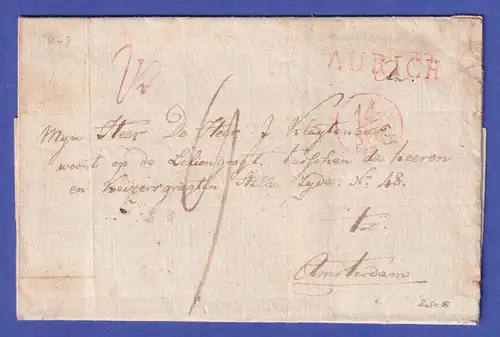 AURICH
An
14
AUG
Myn Heer De Heer J Kluytenaar
woont op de Leliengragt tusschen de heeren
en Keizersgragten Stille Zyde No 48.
tot
Amsterdam